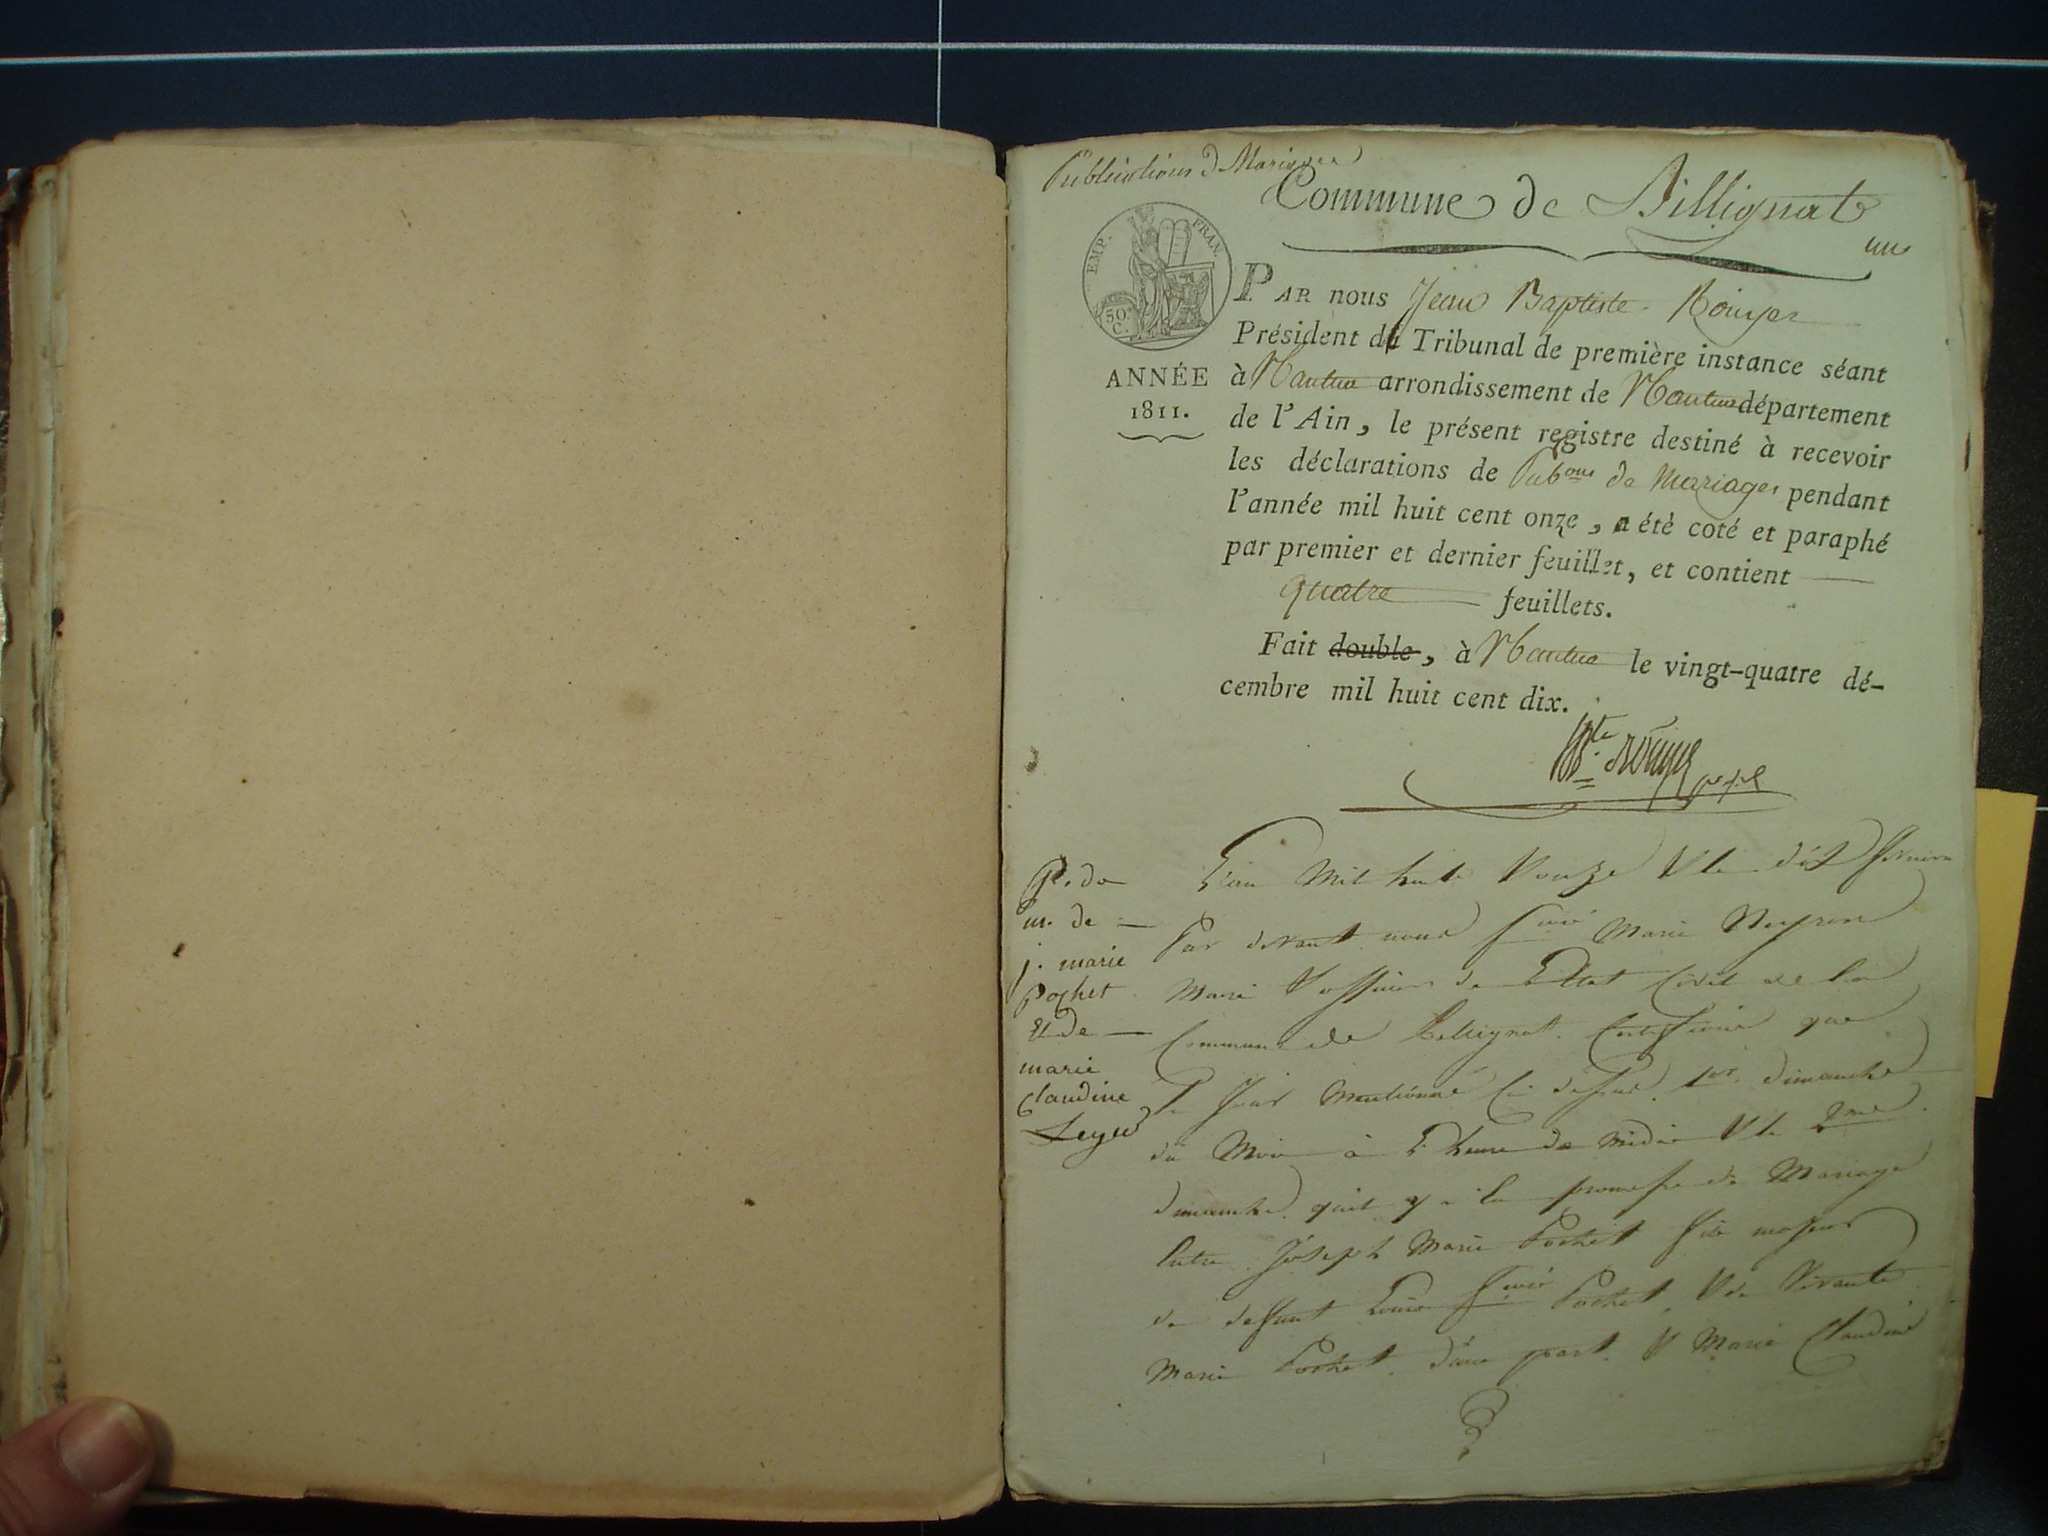 Publications de Mariages
Commune de Billignat
un
EMP. FRAN.
50
C.
ANNÉE
1811.
PAR nous Jean Baptiste Rouyer
Président du Tribunal de première instance séant
à Nantua arrondissement de Nantua département
de l'Ain, le présent registre destiné à recevoir
les déclarations de Pub.ons de Mariages pendant
l'année mil huit cent onze, a été coté et paraphé
par premier et dernier feuillet, et contient
quatre feuillets.
Fait double, à Nantua le vingt-quatre dé-
cembre mil huit cent dix.
P. de
m. de
j. marie
Pochet
Et de
marie
Claudine
L'an Mil huit onze
Par devant nous Marie
de L'Etat Civil de la
Commune de Billignat que
le Jour Mentionné Ci dessus 1er dimanche
du Mois à L'heure de midi 2me
dimanche qu'il y a la promesse de Mariage
Entre Joseph Marie Pochet fils majeur
de deffunt Louis Pochet
Marie Pochet d'une part Marie Claudine